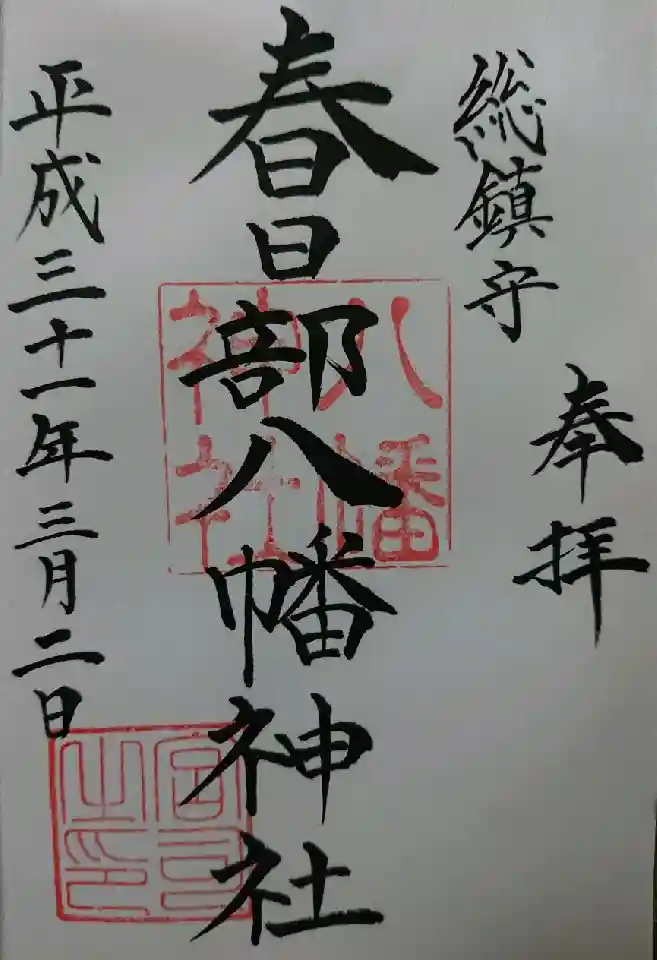 奉拝
総鎮守
春日部八幡神社
平成三十一年三月二日
八幡神社
宮司之印